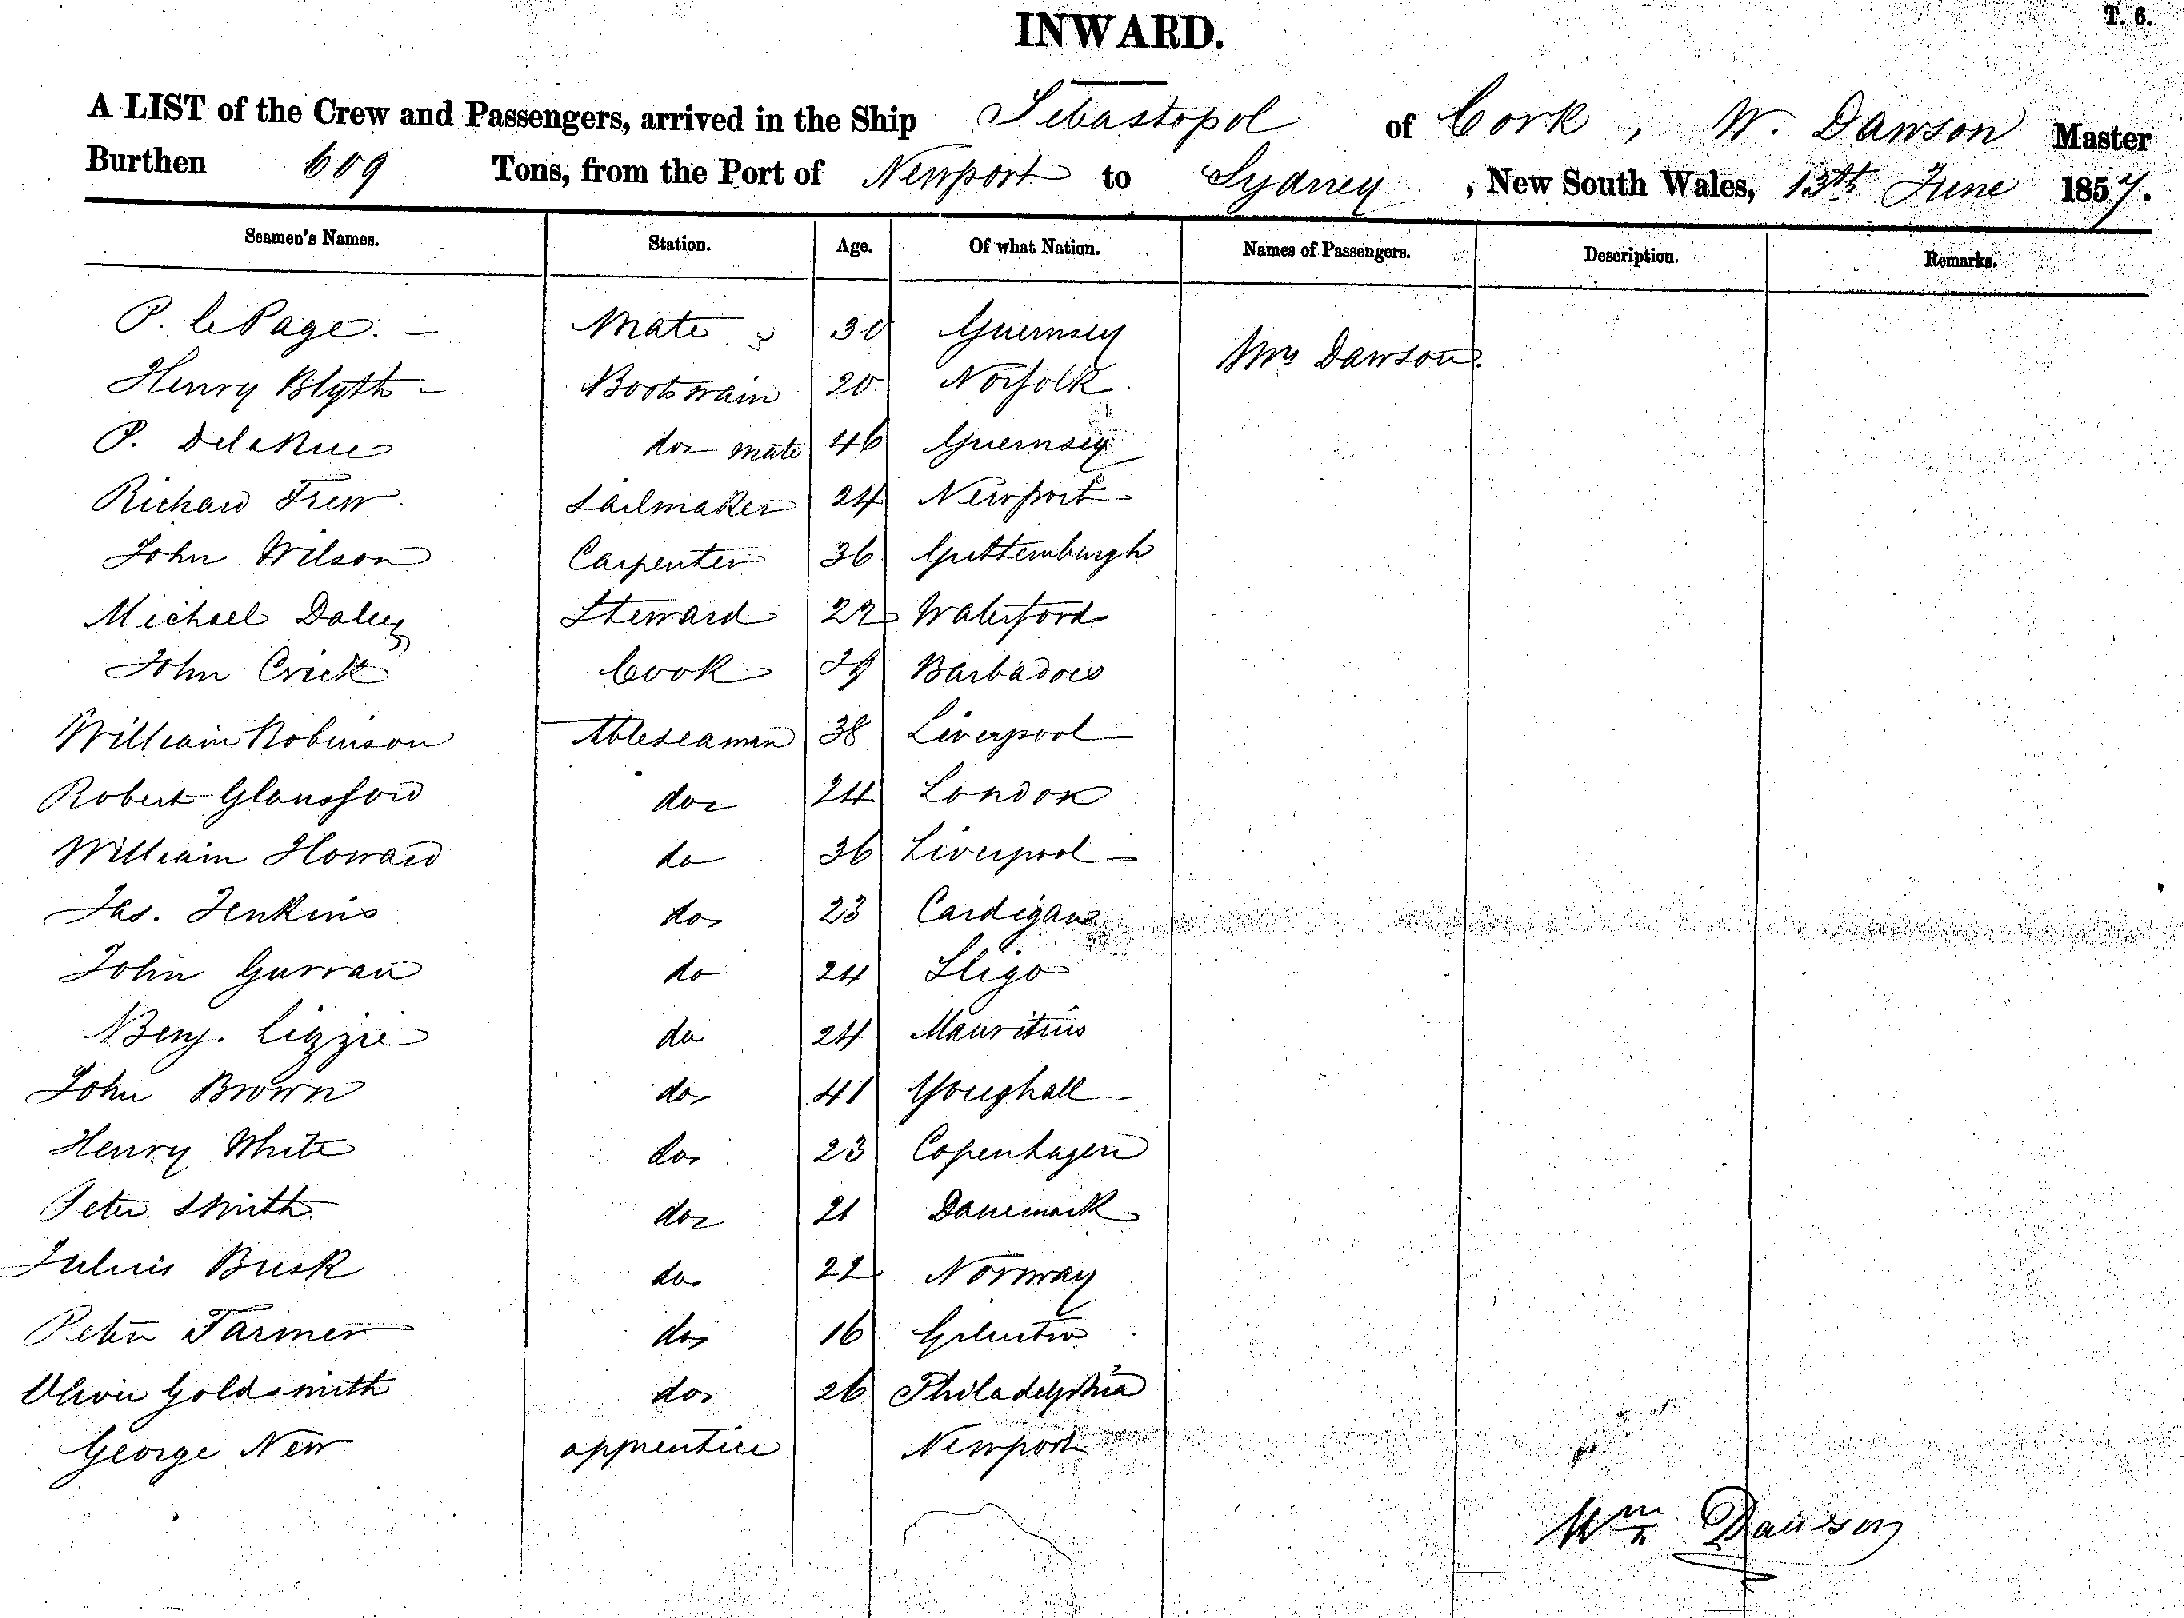 INWARD.
T. 6.
A LIST of the Crew and Passengers, arrived in the Ship Sebastopol of Cork, W. Dawson Master
Burthen 609 Tons, from the Port of Newport to Sydney, New South Wales, 13th June 1857.
Seamen's Names. Station. Age. Of what Nation. Names of Passengers. Description. Remarks.
P. le Page. Mate 30 Guernsey Mrs Dawson
Henry Blyth Bootswain 20 Norfolk
P. DelaRue do mate 46 Guernsey
Richard Frew Sailmaker 24 Newport
John Wilson Carpenter 36 Guttemburgh
Michael Daley Steward 22 Waterford
John Crick Cook 29 Barbadoes
William Robinson Ableseaman 38 Liverpool
Robert Glansford do 24 London
William Howard do 36 Liverpool
Jas. Jenkins do 23 Cardigan
John Gurran do 24 Sligo
Benj. Lizzie do 24 Mauritius
John Brown do 41 Youghall
Henry White do 23 Copenhagen
Peter Smith do 21 Danemark
Julius Busk do 22 Norway
Peter Farmer do 16
Oliver Goldsmith do 26 Philadelphia
George New apprentice Newport
Wm Dawson